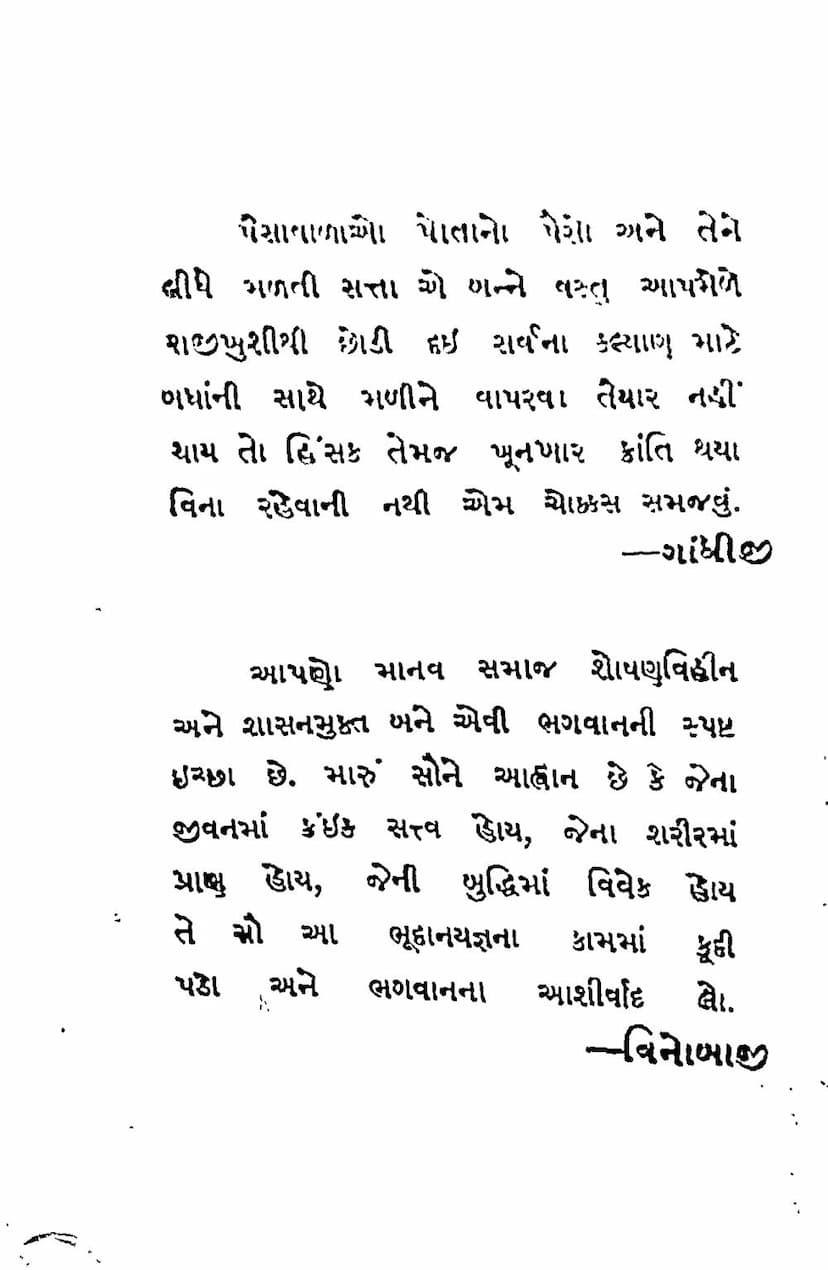 પૈસાવાળાઓ પોતાનો પૈસો અને તેને
લીધે મળતી સત્તા એ બન્ને વસ્તુ આપમેળે
રાજીખુશીથી છોડી દઇ સર્વના કલ્યાણ માટે
બધાંની સાથે મળીને વાપરવા તૈયાર નહીં
થાય તો હિંસક તેમજ ખૂનખાર ક્રાંતિ થયા
વિના રહેવાની નથી એમ ચોક્કસ સમજવું.
—ગાંધીજી
આપણો માનવ સમાજ શોષણવિહીન
અને શાસનમુક્ત બને એવી ભગવાનની સ્પષ્ટ
ઇચ્છા છે. મારું સૌને આહ્વાન છે કે જેના
જીવનમાં કંઇક સત્ત્વ હોય, જેના શરીરમાં
પ્રાણ હોય, જેની બુદ્ધિમાં વિવેક હોય
તે સૌ આ ભૂદાનયજ્ઞના કામમાં કૂદી
પડો અને ભગવાનના આશીર્વાદ લો.
—વિનોબાજી